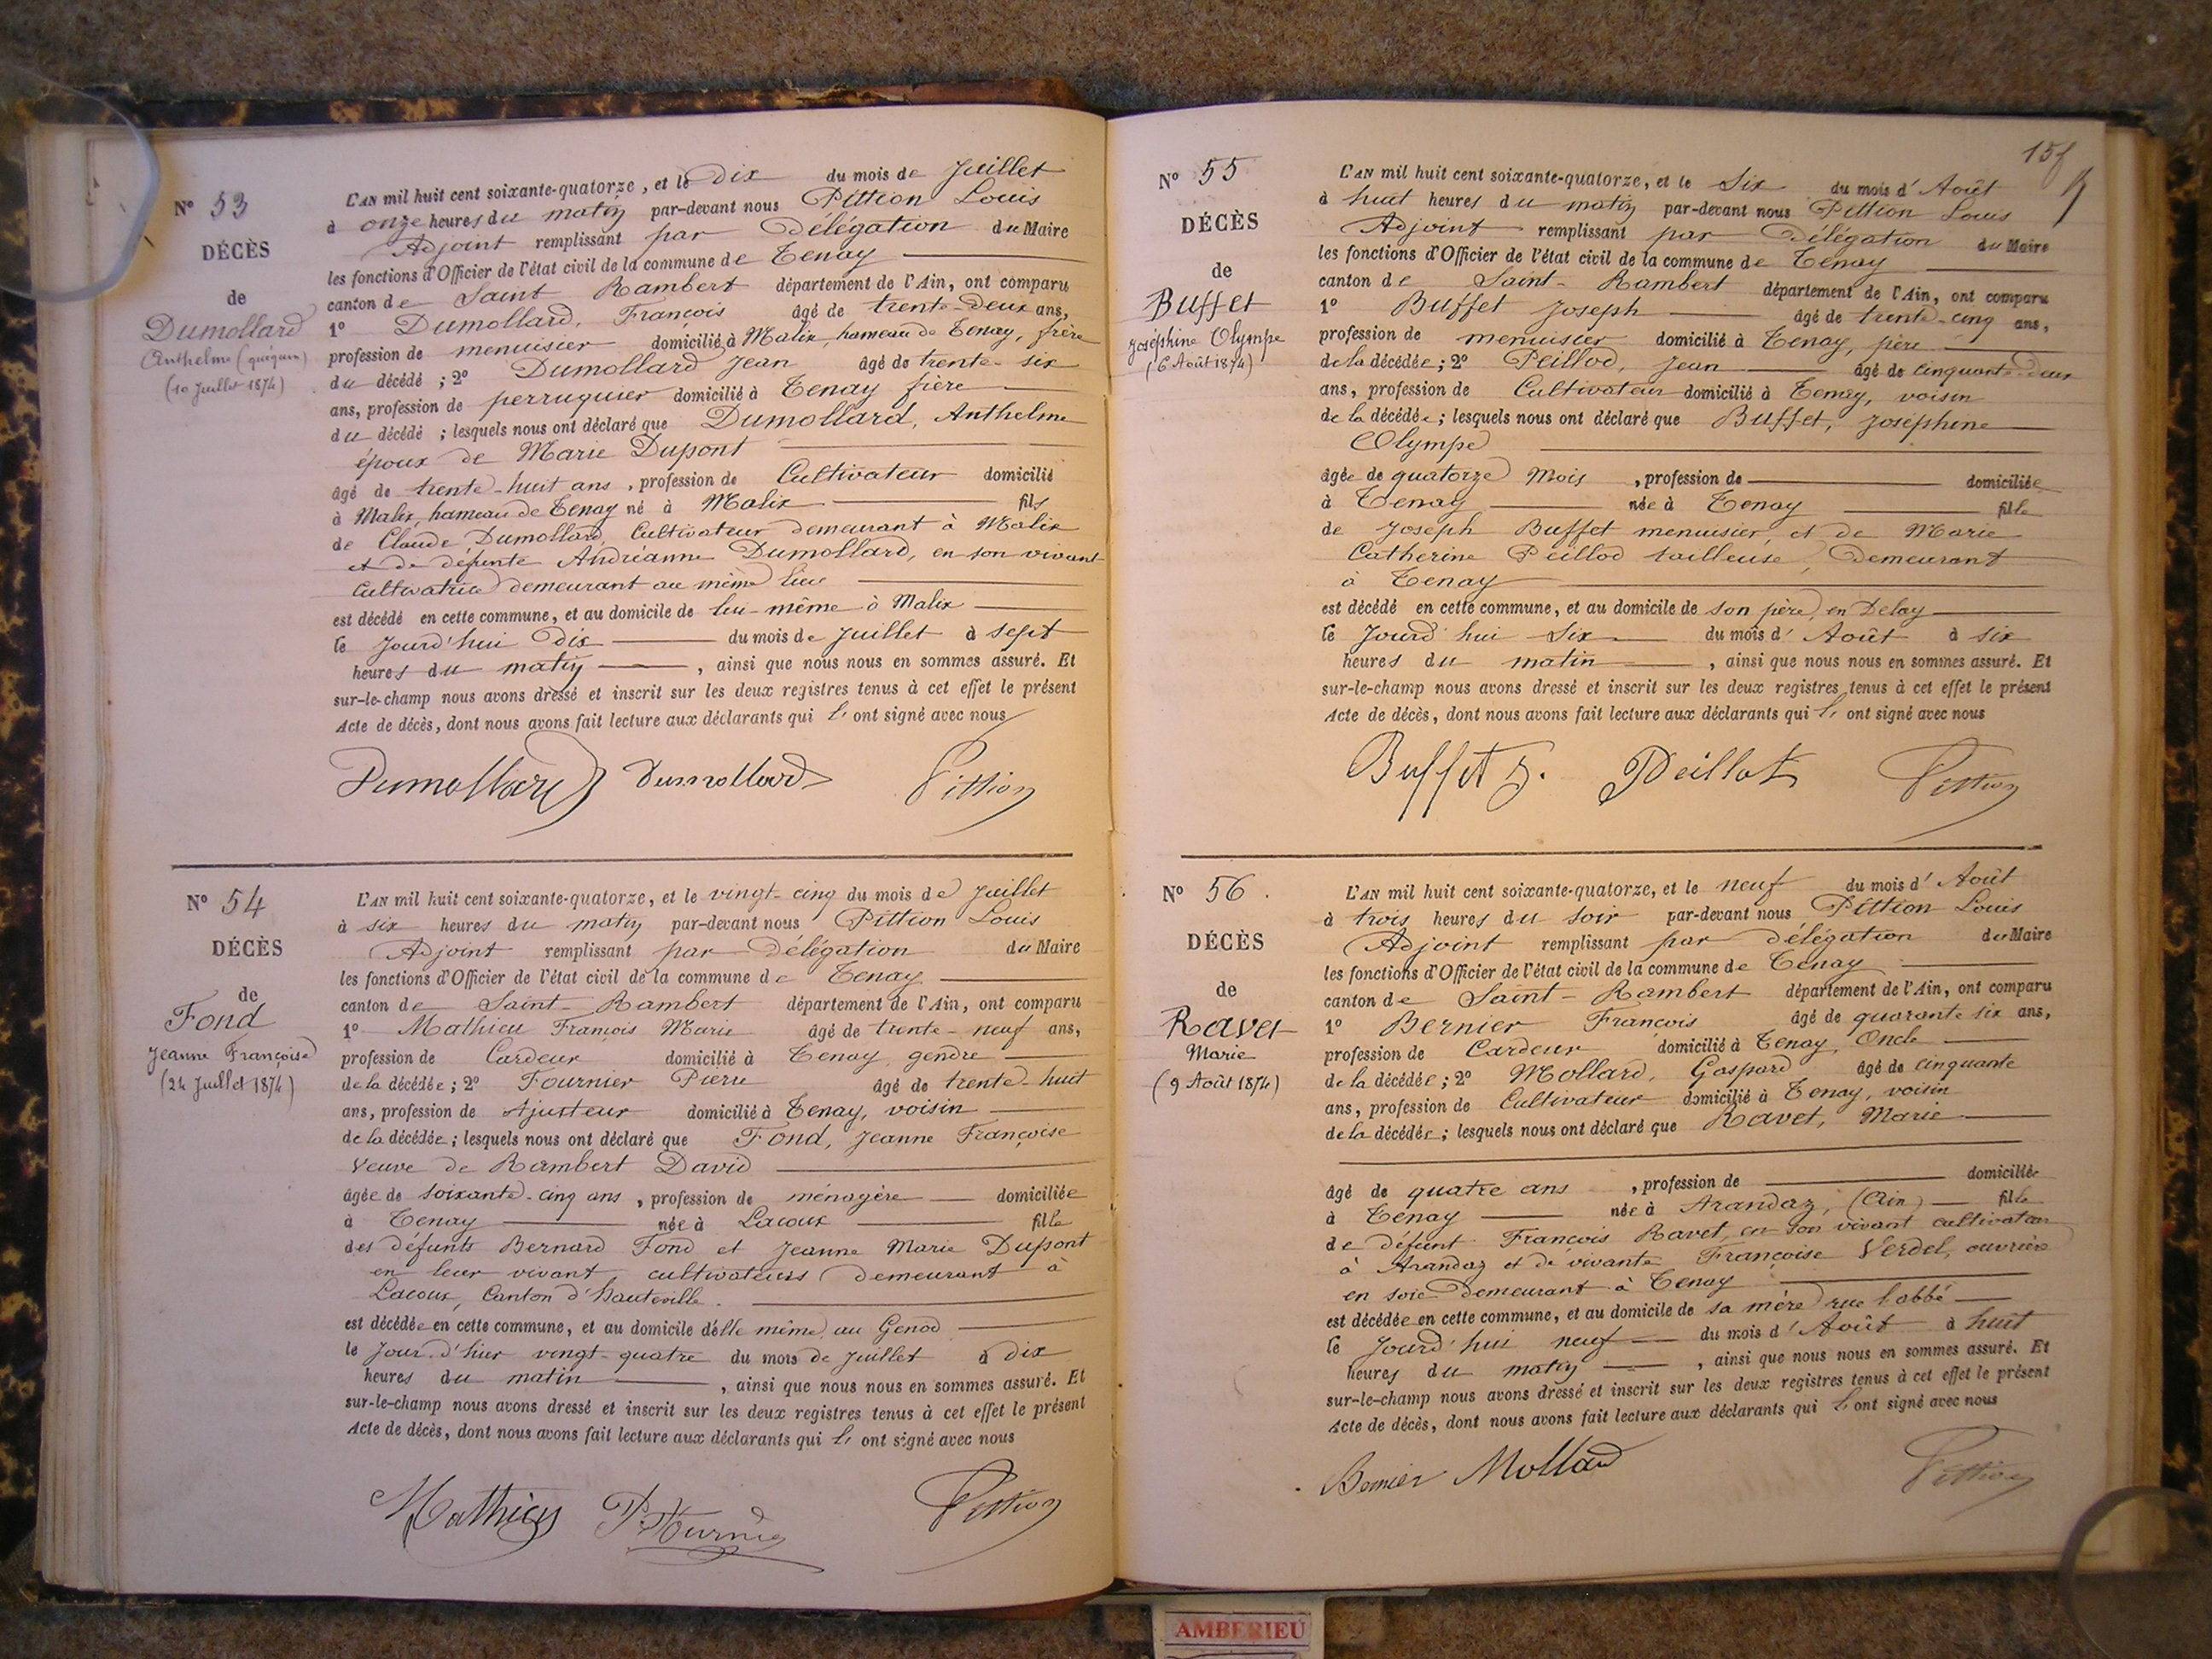 N° 53
DÉCÈS
de
Dumollard
Anthelme
(10 Juillet 1874)
L'AN mil huit cent soixante-quatorze, et le Dix du mois de Juillet
à onze heures du matin par-devant nous Pittion Louis
Adjoint remplissant par Délégation du Maire
les fonctions d'Officier de l'état civil de la commune de Tenay
canton de Saint Rambert département de l'Ain, ont comparu
1° Dumollard, François âgé de trente-deux ans,
profession de menuisier domicilié à Malix, hameau de Tenay, frère
du décédé ; 2° Dumollard Jean âgé de trente-six
ans, profession de perruquier domicilié à Tenay frère
du décédé ; lesquels nous ont déclaré que Dumollard, Anthelme
époux de Marie Dupont
âgé de trente-huit ans, profession de Cultivateur domicilié
à Malix, hameau de Tenay né à Malix fils
de Claude Dumollard, Cultivateur demeurant à Malix
et de défunte Andrianne Dumollard, en son vivant
Cultivatrice demeurant au même lieu
est décédé en cette commune, et au domicile de lui-même à Malix
le Jourd'hui Dix du mois de Juillet à sept
heures du matin, ainsi que nous nous en sommes assuré. Et
sur-le-champ nous avons dressé et inscrit sur les deux registres tenus à cet effet le présent
Acte de décès, dont nous avons fait lecture aux déclarants qui ont signé avec nous
Dumollard Dumollard Pittion
N° 54
DÉCÈS
de
Fond
Jeanne Françoise
(24 Juillet 1874)
L'AN mil huit cent soixante-quatorze, et le vingt-cinq du mois de Juillet
à six heures du matin par-devant nous Pittion Louis
Adjoint remplissant par Délégation du Maire
les fonctions d'Officier de l'état civil de la commune de Tenay
canton de Saint-Rambert département de l'Ain, ont comparu
1° Mathieu François Marie âgé de trente-neuf ans,
profession de Cardeur domicilié à Tenay, gendre
de la décédée ; 2° Fournier Pierre âgé de trente-huit
ans, profession de Ajusteur domicilié à Tenay, voisin
de la décédée ; lesquels nous ont déclaré que Fond, Jeanne Françoise
Veuve de Rambert David
âgée de soixante-cinq ans, profession de ménagère domiciliée
à Tenay née à Lacoux fille
des défunts Bernard Fond et Jeanne Marie Dupont
en leur vivant cultivateurs demeurant à
Lacoux, Canton d'hauteville.
est décédée en cette commune, et au domicile d'elle même au Genod
le Jour d'hier vingt-quatre du mois de Juillet à dix
heures du matin, ainsi que nous nous en sommes assuré. Et
sur-le-champ nous avons dressé et inscrit sur les deux registres tenus à cet effet le présent
Acte de décès, dont nous avons fait lecture aux déclarants qui ont signé avec nous
Mathieu P. Fournier Pittion
N° 55
DÉCÈS
de
Buffet
Joséphine Olympe
(6 Août 1874)
L'AN mil huit cent soixante-quatorze, et le Six du mois d'Août
à huit heures du matin par-devant nous Pittion Louis
Adjoint remplissant par Délégation du Maire
les fonctions d'Officier de l'état civil de la commune de Tenay
canton de Saint-Rambert département de l'Ain, ont comparu
1° Buffet Joseph âgé de trente-cinq ans,
profession de menuisier domicilié à Tenay, père
de la décédée ; 2° Peillod, Jean âgé de cinquante-deux
ans, profession de Cultivateur domicilié à Tenay, voisin
de la décédée ; lesquels nous ont déclaré que Buffet, Joséphine
Olympe
âgée de quatorze Mois, profession de domiciliée
à Tenay née à Tenay fille
de Joseph Buffet menuisier, et de Marie
Catherine Peillod tailleuse, Demeurant
à Tenay
est décédé en cette commune, et au domicile de son père, en Delay
le Jourd'hui Six du mois d'Août à six
heures du matin, ainsi que nous nous en sommes assuré. Et
sur-le-champ nous avons dressé et inscrit sur les deux registres tenus à cet effet le présent
Acte de décès, dont nous avons fait lecture aux déclarants qui ont signé avec nous
Buffet J. Peillot Pittion
N° 56
DÉCÈS
de
Ravet
Marie
(9 Août 1874)
L'AN mil huit cent soixante-quatorze, et le neuf du mois d'Août
à trois heures du soir par-devant nous Pittion Louis
Adjoint remplissant par délégation du Maire
les fonctions d'Officier de l'état civil de la commune de Tenay
canton de Saint-Rambert département de l'Ain, ont comparu
1° Bernier François âgé de quarante six ans,
profession de Cardeur domicilié à Tenay, Oncle
de la décédée ; 2° Mollard, Gaspard âgé de cinquante
ans, profession de Cultivateur domicilié à Tenay, voisin
de la décédée ; lesquels nous ont déclaré que Ravet, Marie
âgé de quatre ans, profession de domiciliée
à Tenay née à Arandaz, (Ain) fille
de défunt François Ravet, en son vivant cultivateur
à Arandaz et de vivante Françoise Verdel, ouvrière
en soie demeurant à Tenay
est décédée en cette commune, et au domicile de sa mère rue l'abbé
le Jourd'hui neuf du mois d'Août à huit
heures du matin, ainsi que nous nous en sommes assuré. Et
sur-le-champ nous avons dressé et inscrit sur les deux registres tenus à cet effet le présent
Acte de décès, dont nous avons fait lecture aux déclarants qui ont signé avec nous
Bernier Mollard Pittion
AMBERIEU